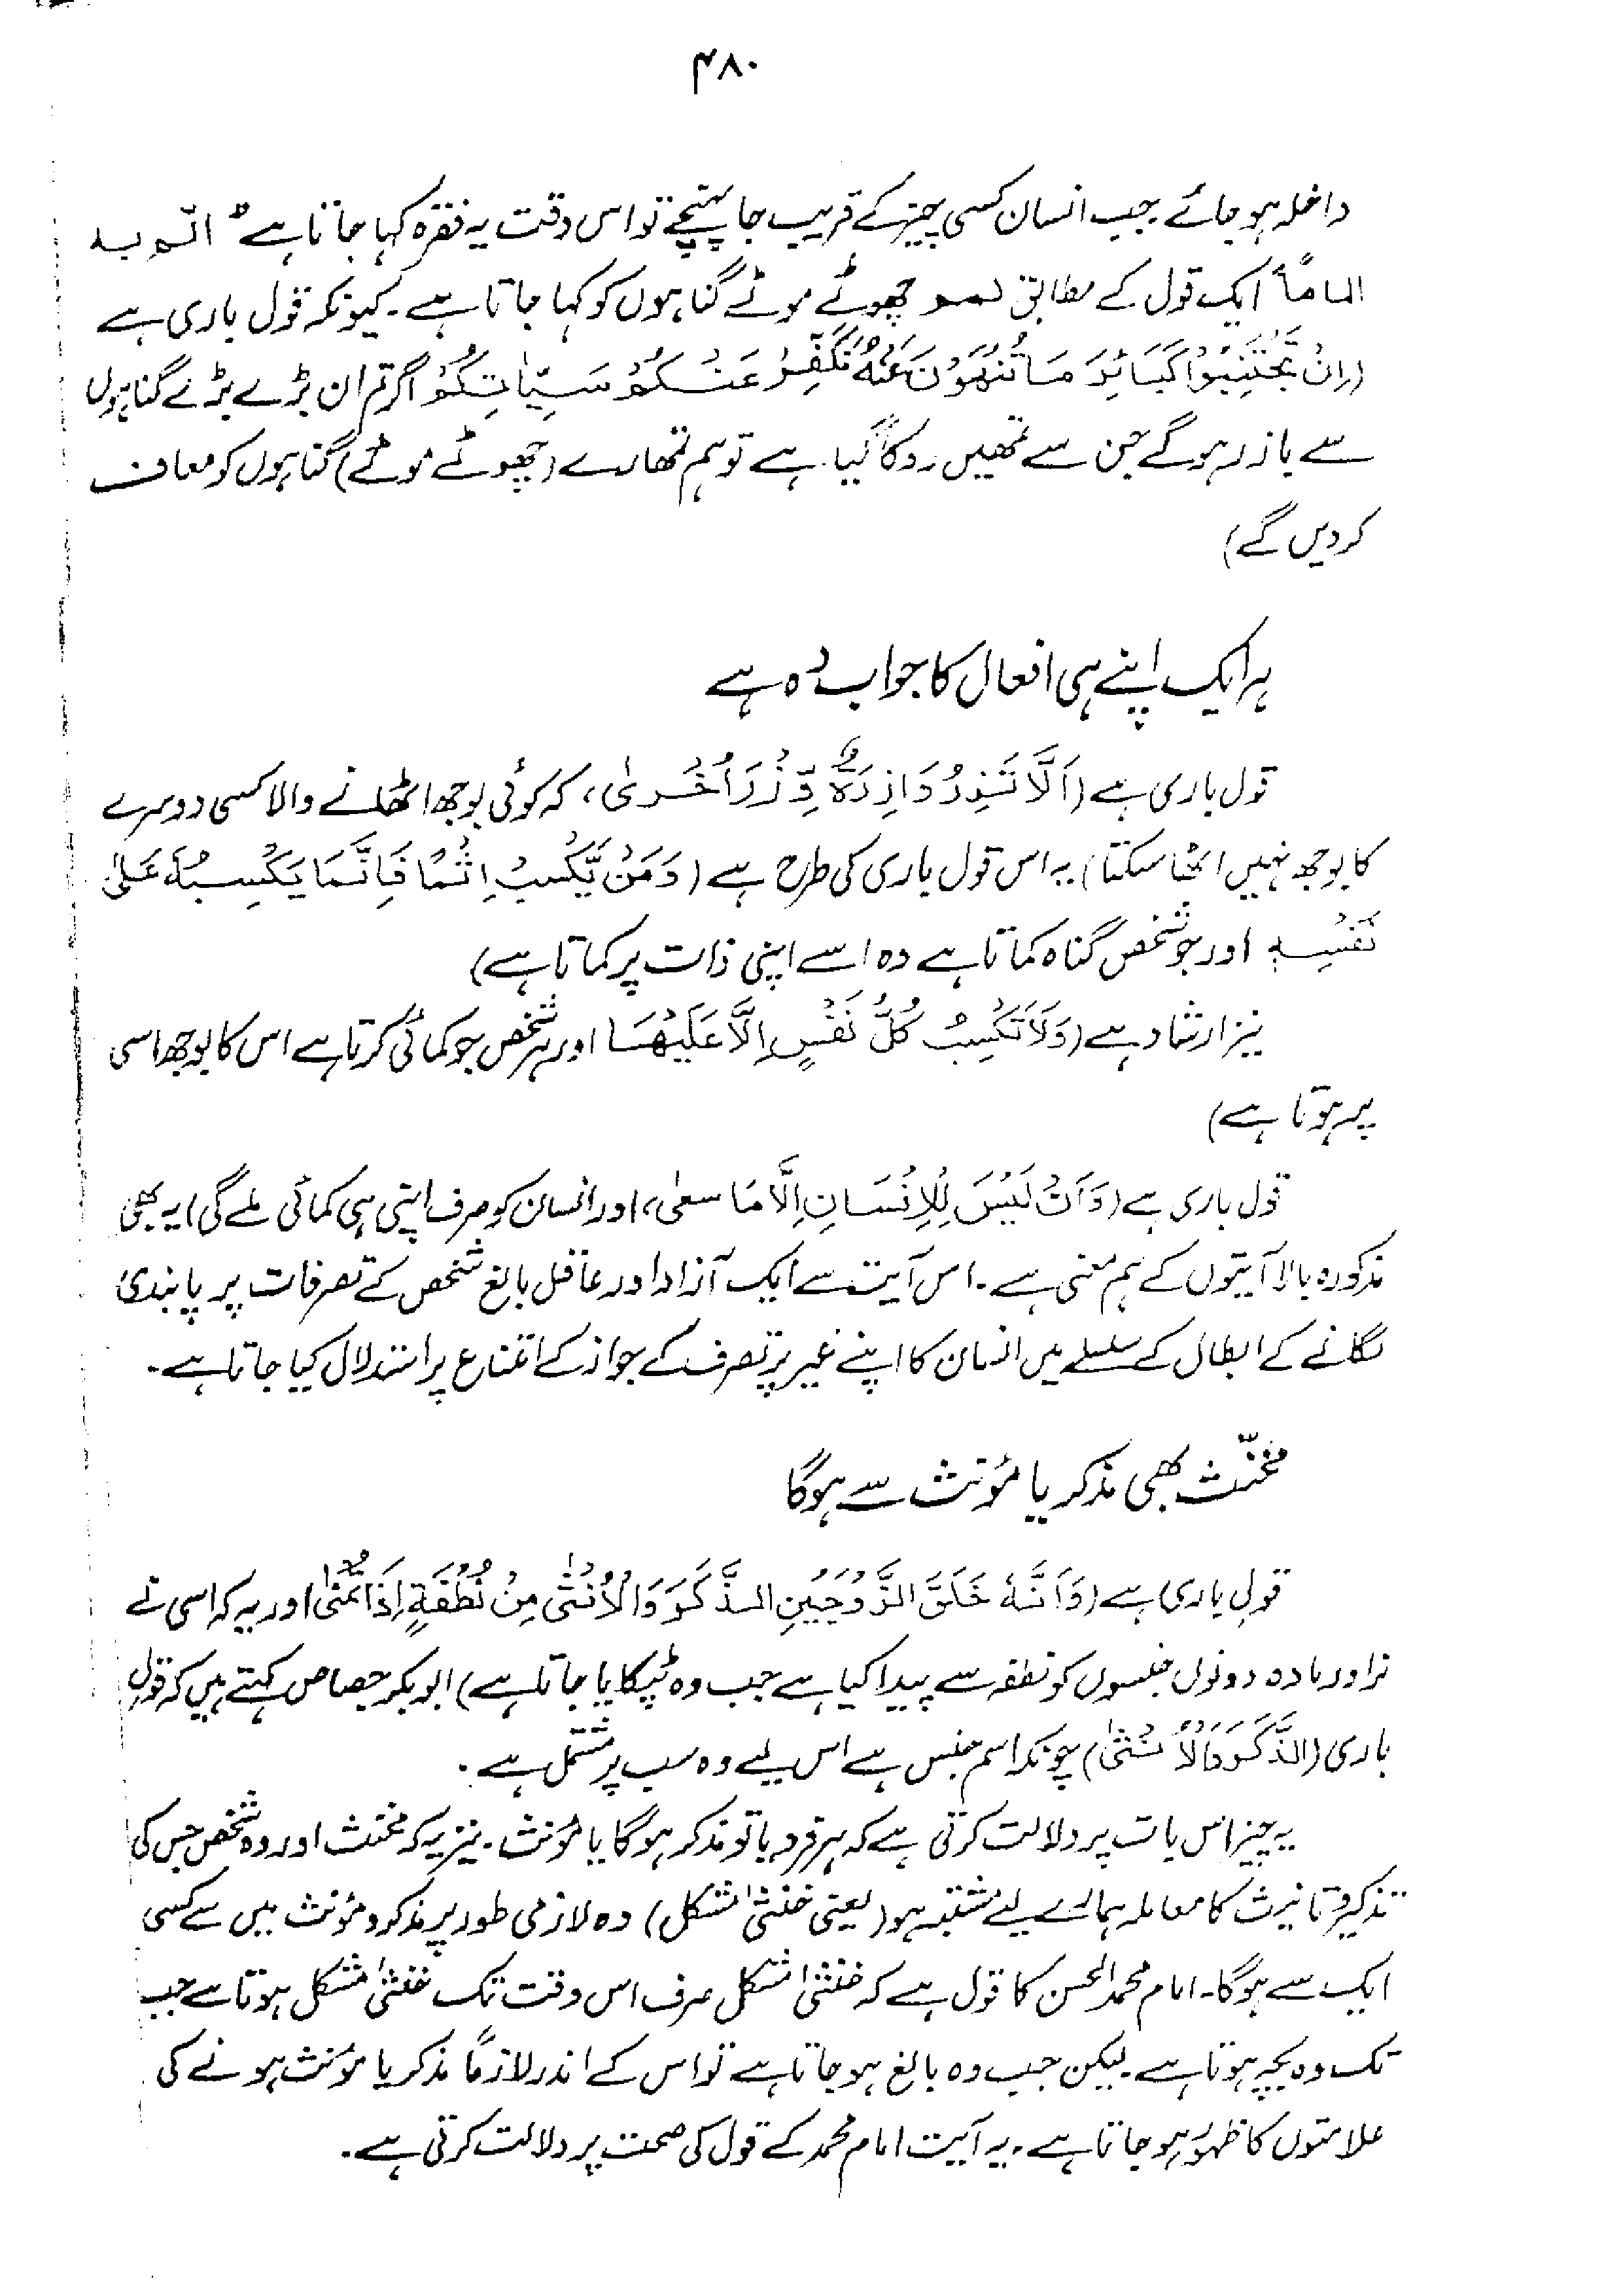 ۴۸۰
داخلہ ہو جائے۔ جب انسان کسی چیز کے قریب جا پہنچے تو اس وقت یہ فقرہ کہا جاتا ہے "السّم بہ
الماماً" ایک قول کے مطابق لمم چھوٹے موٹے گناہوں کو کہا جاتا ہے۔ کیونکہ قول باری ہے
(اِنْ تَجْتَنِبُوْا كَبَائِرَ مَا تُنْهَوْنَ عَنْهُ نُكَفِّرْ عَنْكُمْ سَيِّاٰتِكُمْ اگر تم ان بڑے بڑے گناہوں
سے باز رہو گے جن سے تمھیں روکا گیا ہے تو ہم تمھارے (چھوٹے موٹے) گناہوں کو معاف
کر دیں گے)
ہر ایک اپنے ہی افعال کا جواب دہ ہے
قول باری ہے (اَلَّا تَزِرُ وَازِرَةٌ وِّزْرَ اُخْرىٰ، کہ کوئی بوجھ اٹھانے والا کسی دوسرے
کا بوجھ نہیں اٹھا سکتا) یہ اس قول باری کی طرح ہے (وَمَنْ يَّكْسِبْ اِثْمًا فَاِنَّمَا يَكْسِبُهٗ عَلىٰ
نَفْسِهٖ اور جو شخص گناہ کماتا ہے وہ اسے اپنی ذات پر کماتا ہے)
نیز ارشاد ہے (وَلَا تَكْسِبُ كُلُّ نَفْسٍ اِلَّا عَلَيْهَا اور ہر شخص جو کمائی کرتا ہے اس کا بوجھ اسی
پر ہوتا ہے)
قول باری ہے (وَاَنْ لَيْسَ لِلْاِنْسَانِ اِلَّا مَا سعىٰ، اور انسان کو صرف اپنی ہی کمائی ملے گی) یہ بھی
مذکورہ بالا آیتوں کے ہم معنی ہے۔ اس آیت سے ایک آزاد اور عاقل بالغ شخص کے تصرفات پر پابندی
لگانے کے ابطال کے سلسلے میں انسان کا اپنے غیر پر تصرف کے جواز کے امتناع پر استدلال کیا جاتا ہے۔
مخنّث بھی مذکر یا مؤنث سے ہوگا
قول باری ہے (وَاَنَّهٗ خَلَقَ الزَّوْجَيْنِ الذَّكَرَ وَالْاُنْثٰى مِنْ نُطْفَةٍ اِذَا تُمْنٰى اور یہ کہ اسی نے
نر اور مادہ دونوں جنسوں کو نطفہ سے پیدا کیا ہے جب وہ ٹپکایا جاتا ہے) ابوبکر جصاص کہتے ہیں کہ قول
باری (الذَّكَرَ وَالْاُنْثٰى) چونکہ اسم جنس ہے اس لیے وہ سب پر مشتمل ہے۔
یہ چیز اس بات پر دلالت کرتی ہے کہ ہر فرد یا تو مذکر ہوگا یا مؤنث۔ نیز یہ کہ مخنث اور وہ شخص جس کی
تذکیر و تانیث کا معاملہ ہمارے لیے مشتبہ ہو (یعنی خنثیٰ مشکل) وہ لازمی طور پر مذکر و مؤنث میں سے کسی
ایک سے ہوگا۔ امام محمد الحسن کا قول ہے کہ خنثیٰ مشکل صرف اس وقت تک خنثیٰ مشکل ہوتا ہے جب
تک وہ بچہ ہوتا ہے۔ لیکن جب وہ بالغ ہو جاتا ہے تو اس کے اندر لازماً مذکر یا مؤنث ہونے کی
علامتوں کا ظہور ہو جاتا ہے۔ یہ آیت امام محمد کے قول کی صحت پر دلالت کرتی ہے۔